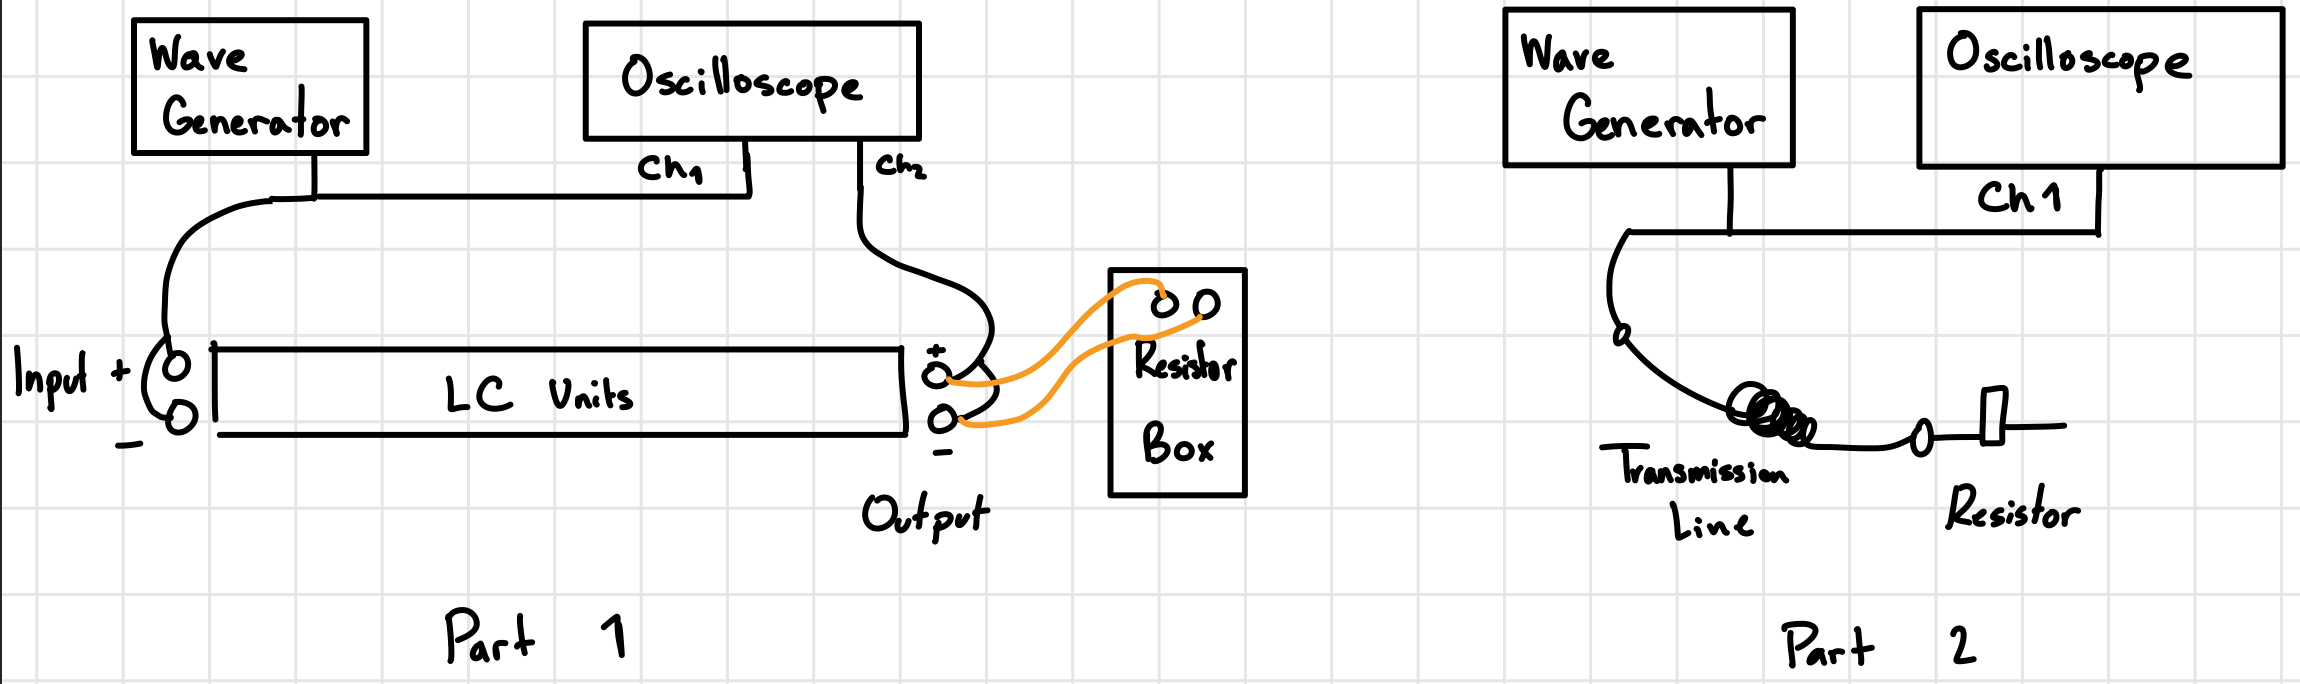 Wave
Generator
Oscilloscope
Ch1
Ch2
Input +
−
LC Units
+
−
Output
Resistor
Box
Part 1
Wave
Generator
Oscilloscope
Ch1
Transmission
Line
Resistor
Part 2